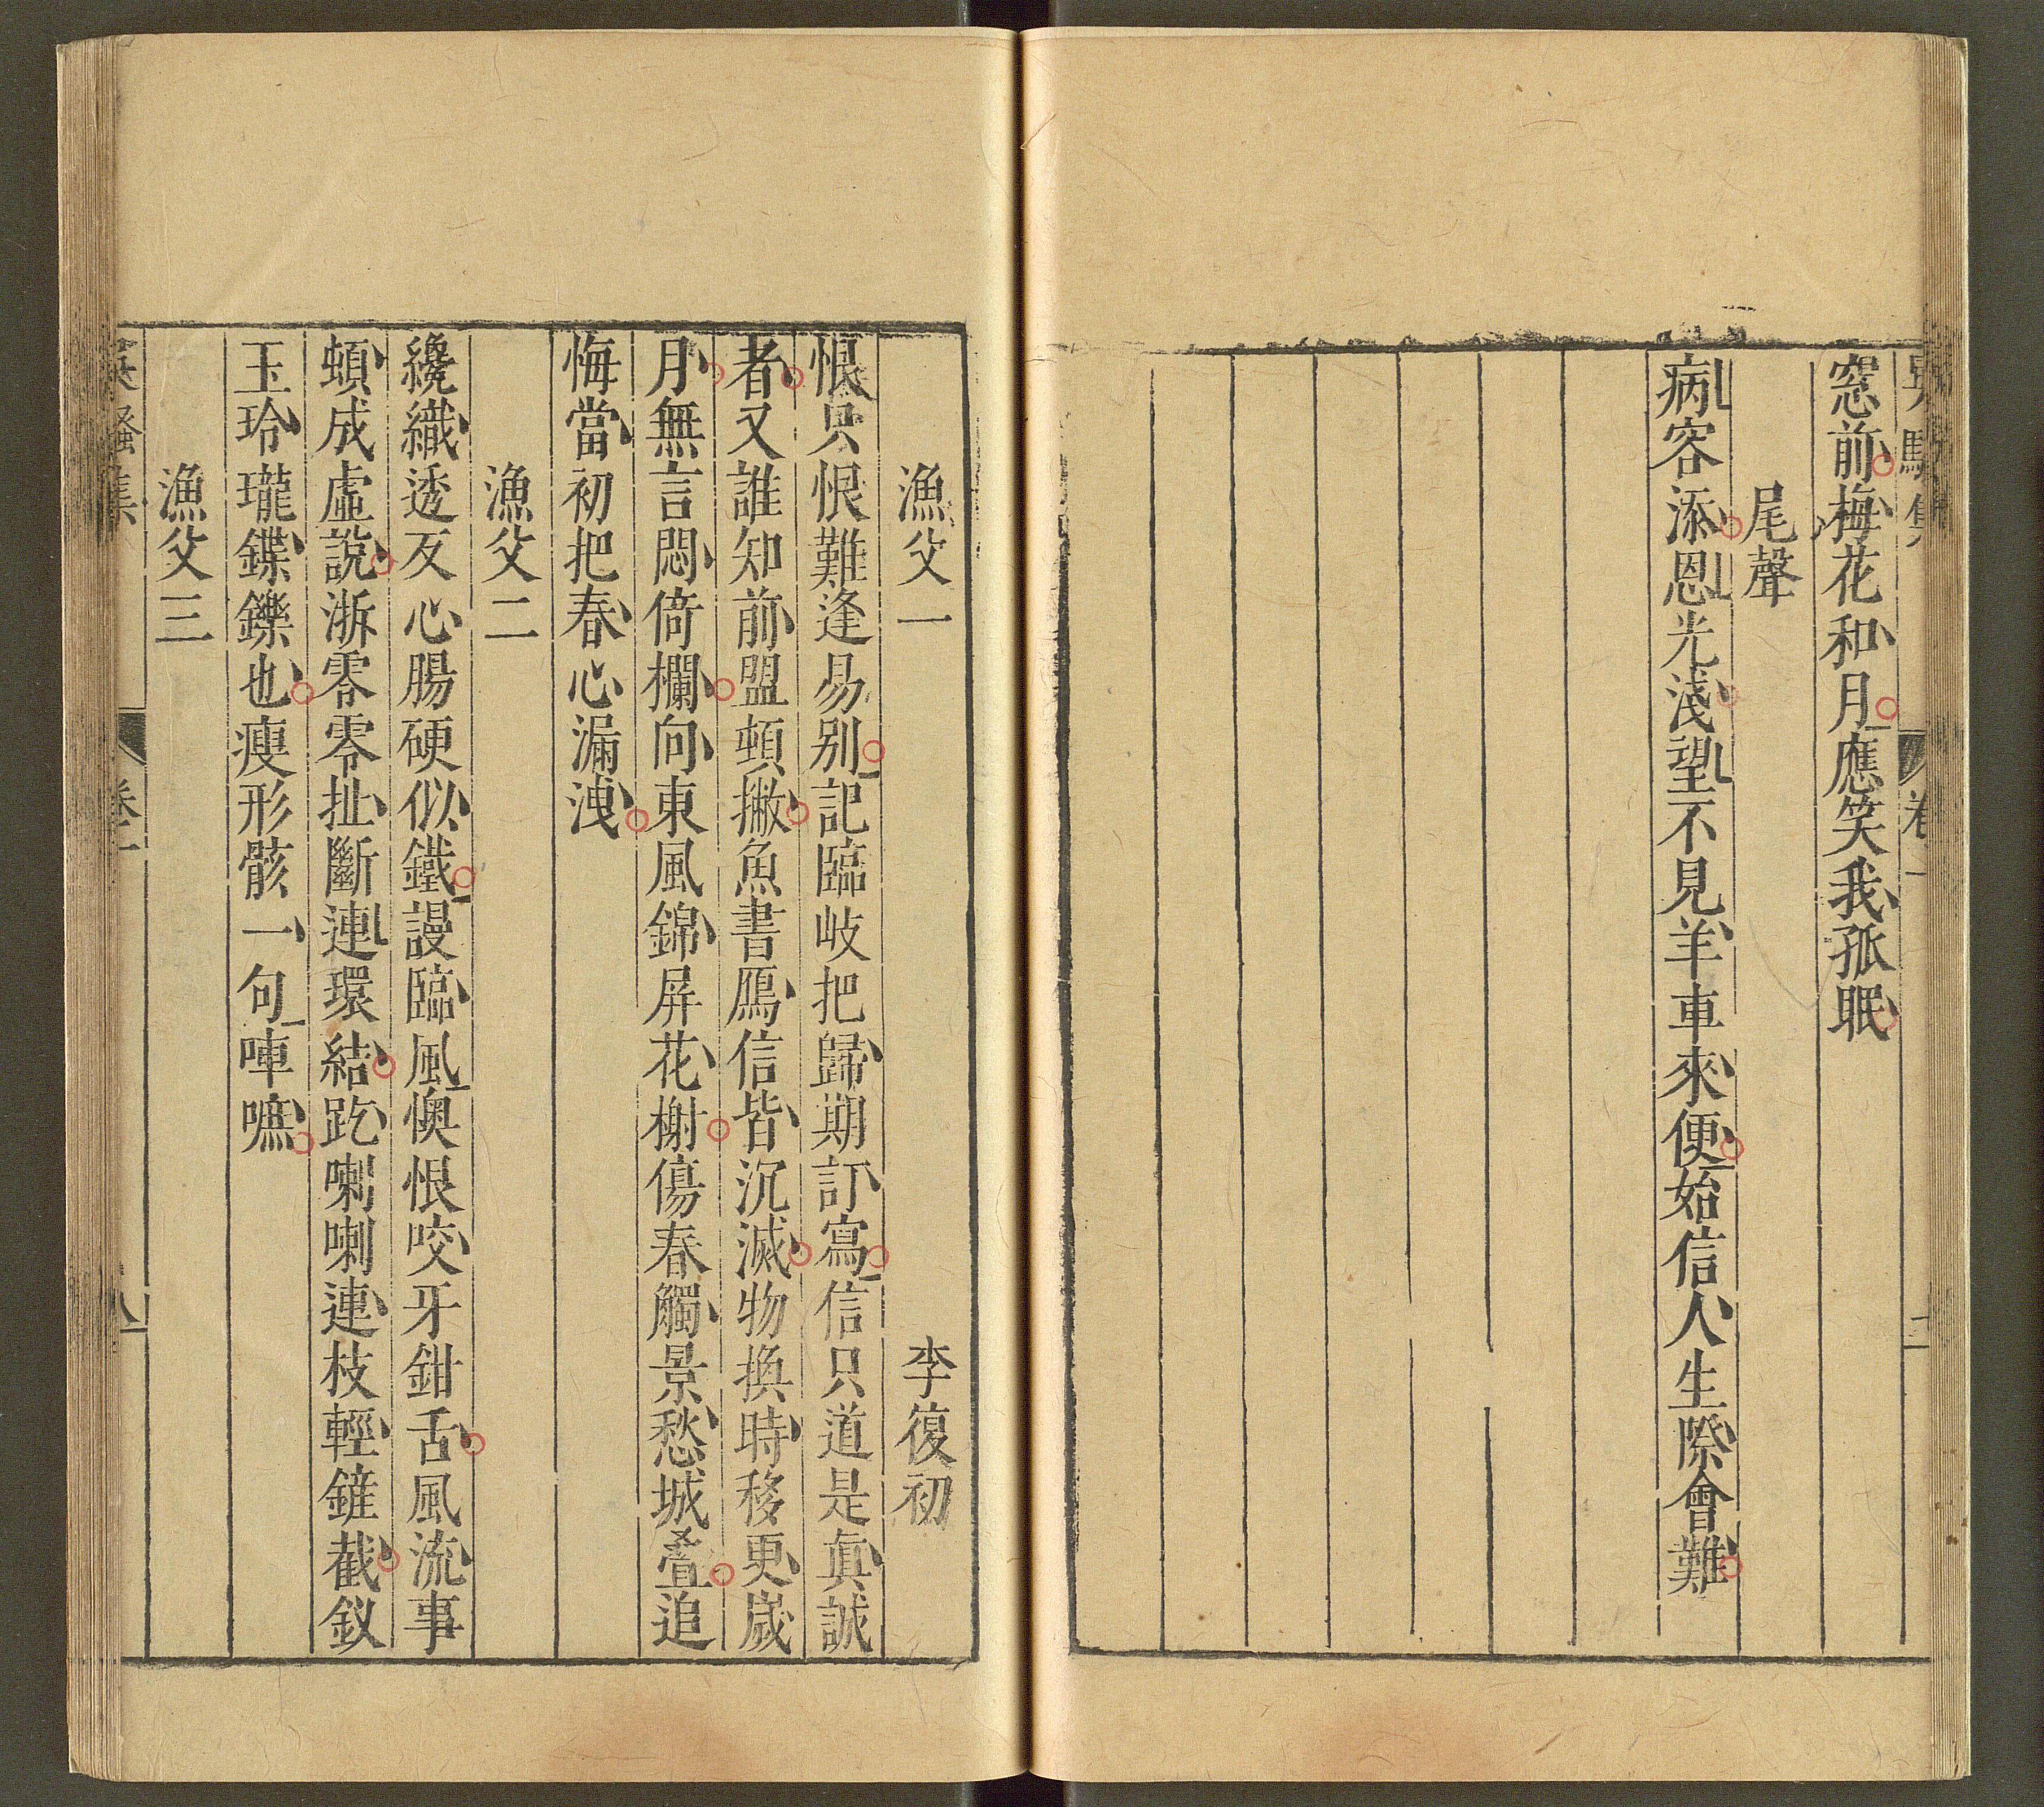 窓前梅花和月應笑我孤眠
尾聲
病客添恩光淺望不見羊車來便始信人生際會難
漁父一 李復初
恨只恨難逢易别記臨岐把歸期訂寫信只道是眞誠
者又誰知前盟頓撇魚書鴈信皆沉滅物換時移更嵗
月無言悶倚欄向東風錦屏花榭傷春觸景愁城疊追
悔當初把春心漏洩
漁父二
纔織透歹心腸硬似鐵謾臨風懊恨咬牙鉗舌風流事
頓成虛說㴲零零扯斷連環結趷喇喇連枝輕鏟截釵
玉玲瓏鏶鑠也瘦形骸一句唓嗻
漁父三